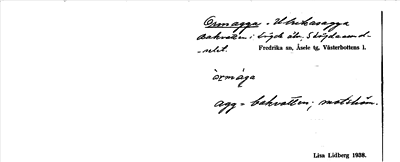 Ormagga - Ulriksasagga
bakvatten i Lögde älv,
-selet. Fredrika sn, Åsele tg, Västerbottens l.
òrmága
agg = bakvatten; motström.
Lisa Lidberg 1938.